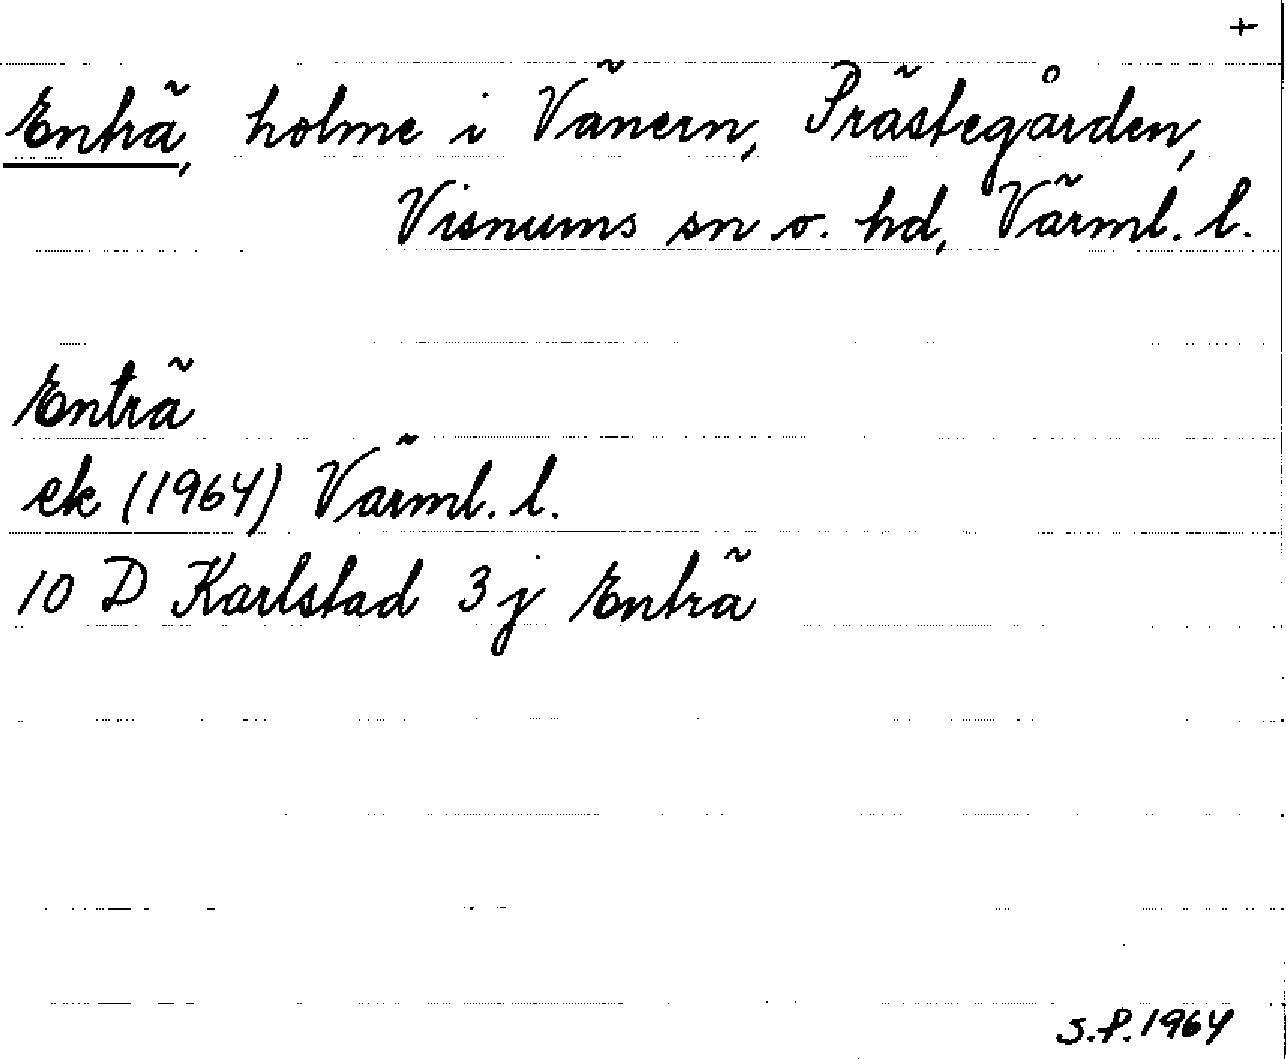 +
Enträ, holme i Vänern, Prästegården,
Visnums sn o. hd, Värml. l.
Enträ
ek (1964) Värml. l.
10 D Karlstad 3 j Enträ
S.P. 1964